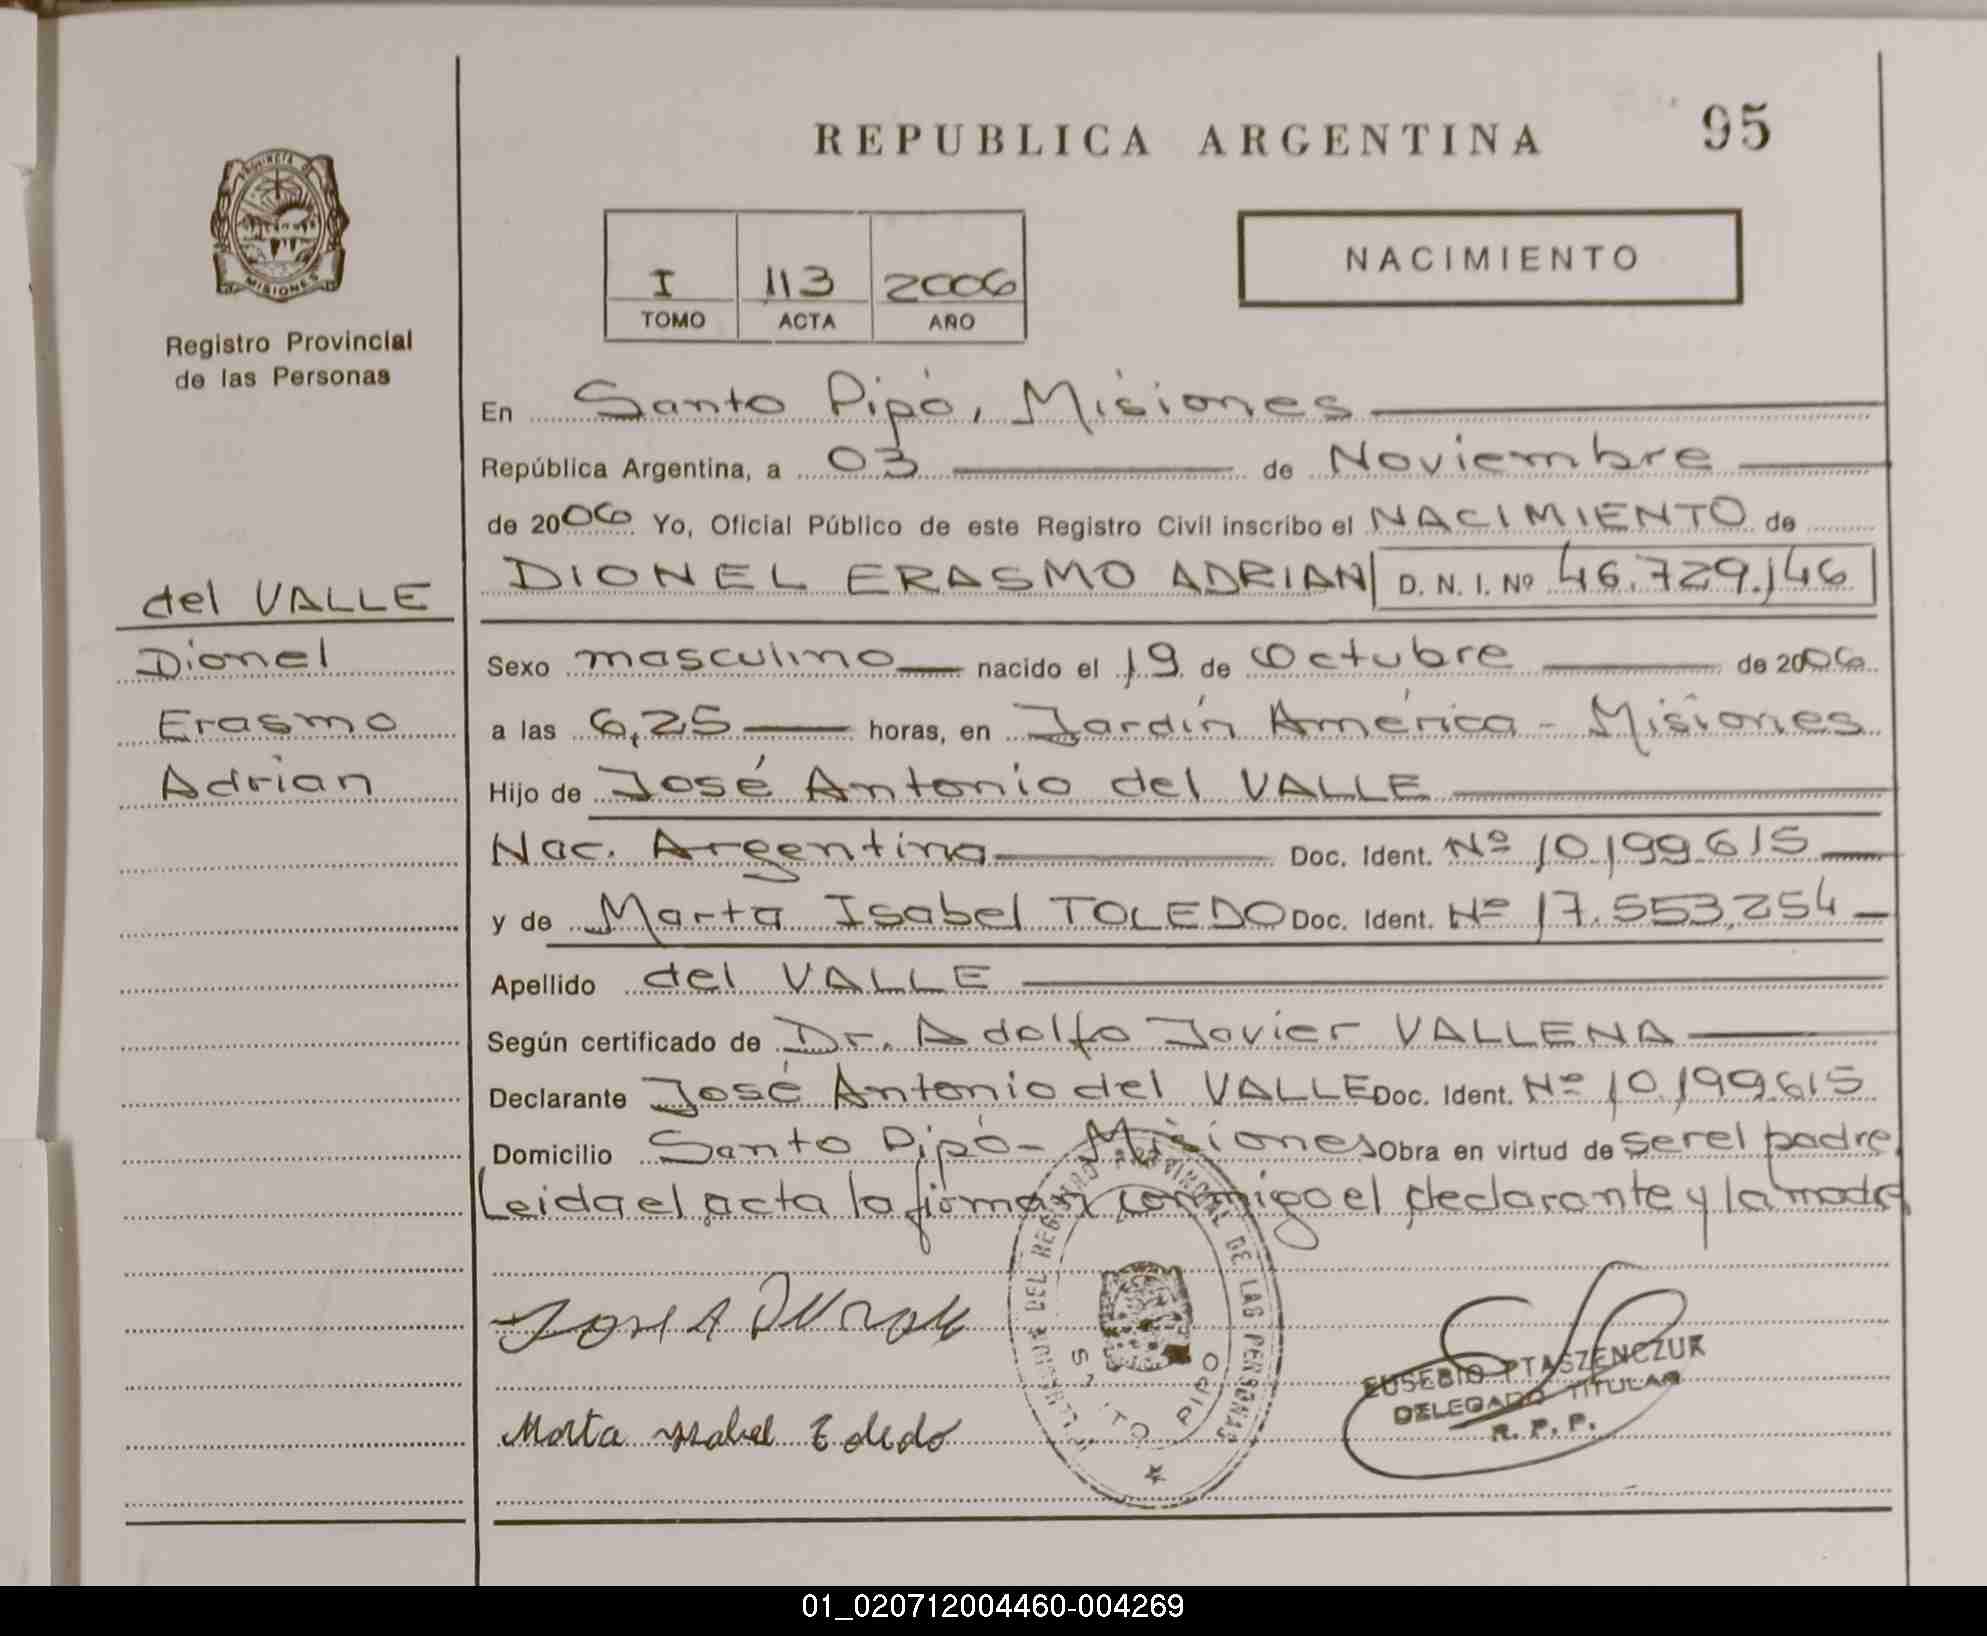 REPUBLICA ARGENTINA
95
PROVINCIA DE
MISIONES
Registro Provincial
de las Personas
I 113 2006
TOMO ACTA AÑO
NACIMIENTO
En Santo Pipó, Misiones
República Argentina, a 03 de Noviembre
de 2006 Yo, Oficial Público de este Registro Civil inscribo el NACIMIENTO de
DIONEL ERASMO ADRIAN D. N. I. Nº 46.729.146
del VALLE
Dionel
Erasmo
Adrian
Sexo masculino nacido el 19 de Octubre de 2006
a las 6,25 horas, en Jardín América - Misiones
Hijo de José Antonio del VALLE
Nac. Argentina Doc. Ident. Nº 10.199.615
y de Marta Isabel TOLEDO Doc. Ident. Nº 17.553.254
Apellido del VALLE
Según certificado de Dr. Adolfo Javier VALLENA
Declarante José Antonio del VALLE Doc. Ident. Nº 10.199.615
Domicilio Santo Pipó - Misiones Obra en virtud de ser el padre.
Leida el acta la firman conmigo el declarante y la madre
DEL REGISTRO PROVINCIAL DE LAS PERSONAS
PIPO
Jose A Del Valle
Marta Isabel Toledo
EUSEBIO PTASZENCZUK
DELEGADO TITULAR
R. P. P.
01_020712004460-004269